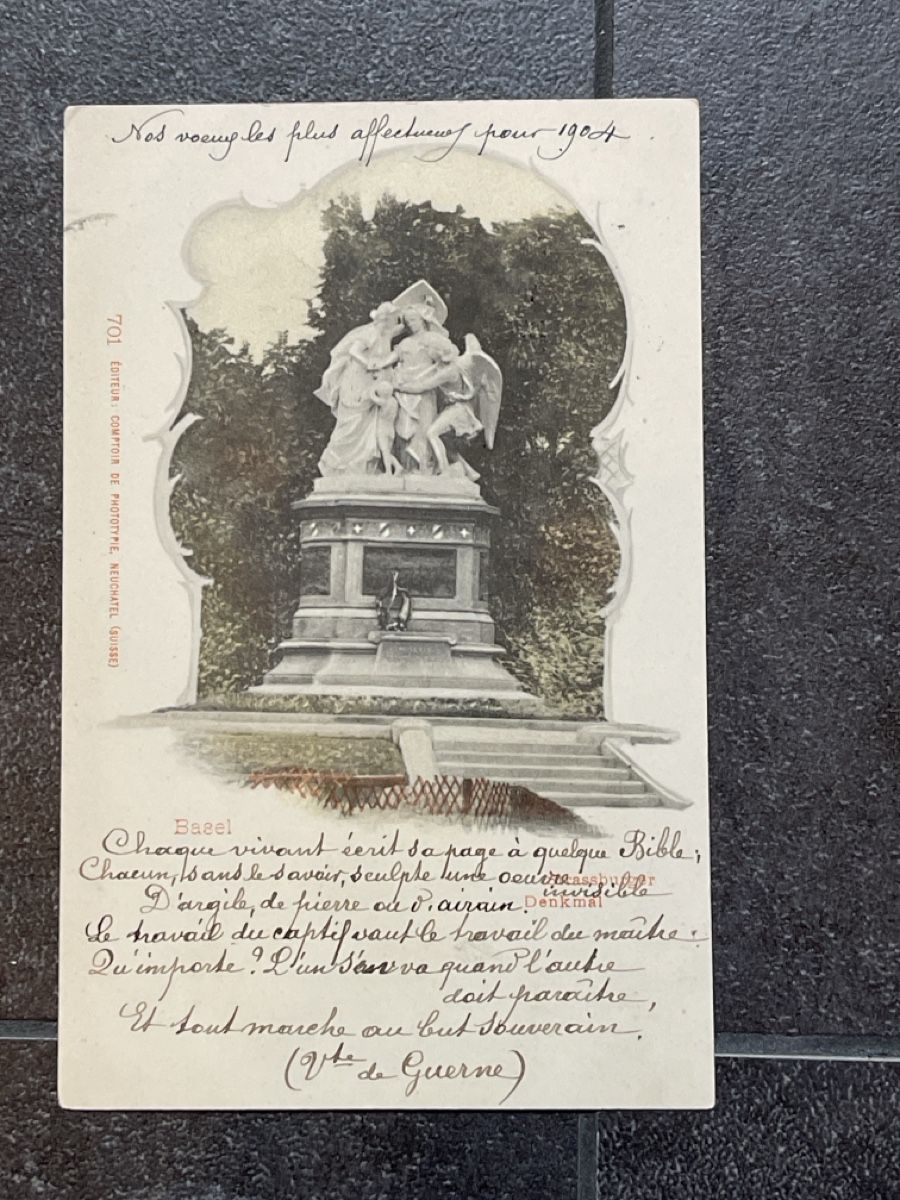 Nos voeux les plus affectueux pour 1904.
701 ÉDITEUR: COMPTOIR DE PHOTOTYPIE, NEUCHATEL (SUISSE)
Basel
Strassburger
Denkmal
Chaque vivant écrit sa page à quelque Bible;
Chacun, sans le savoir, sculpte une oeuvre invisible
D'argile, de pierre ou d'airain.
Le travail du captif vaut le travail du maître:
Qu'importe? L'un s'en va quand l'autre
doit paraître,
Et tout marche au but souverain!
(Vte de Guerne)